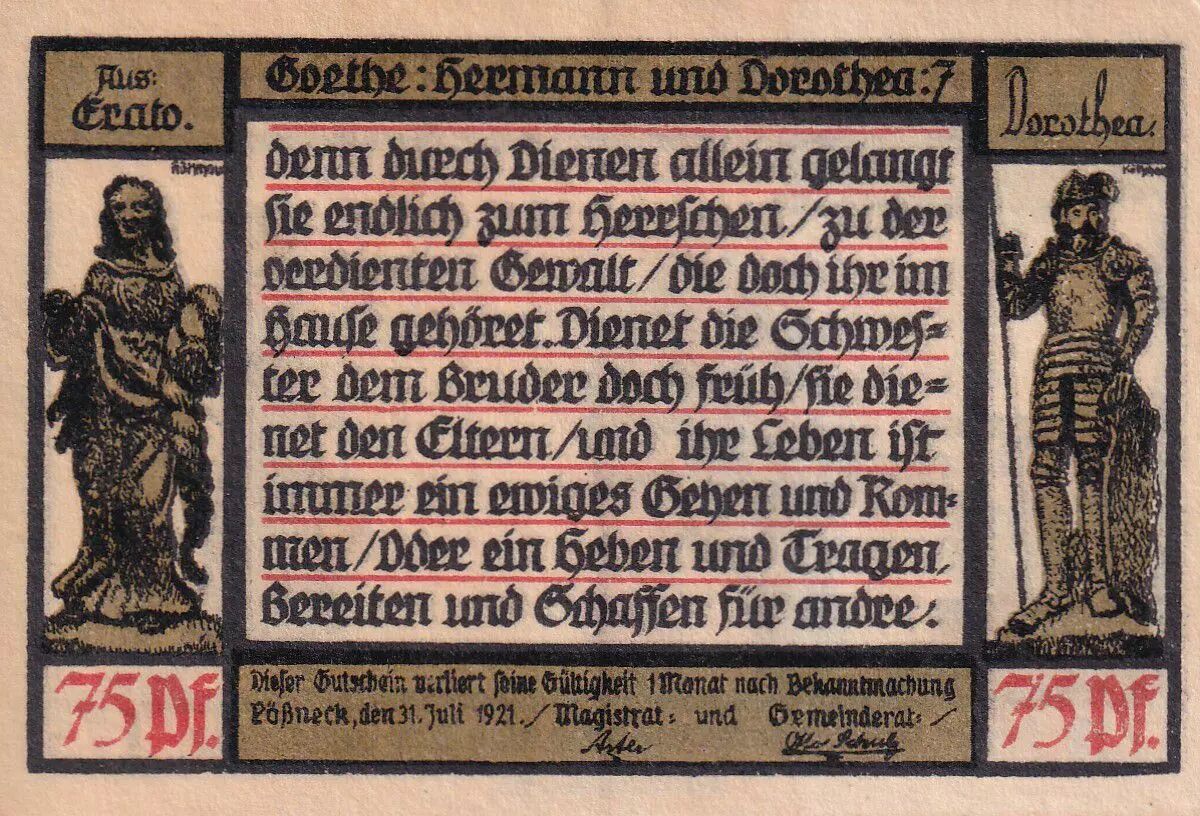 Aus:
Erato.
Goethe: Hermann und Dorothea: 7
Dorothea.
denn durch Dienen allein gelangt
sie endlich zum Herrschen / zu der
verdienten Gewalt / die doch ihr im
Hause gehöret. Dienet die Schwes-
ter dem Bruder doch früh / sie die-
net den Eltern / und ihr Leben ist
immer ein ewiges Gehen und Kom-
men / Oder ein Heben und Tragen,
Bereiten und Schaffen für andre.
75 Pf.
Dieser Gutschein verliert seine Gültigkeit 1 Monat nach Bekanntmachung
Pößneck, den 31. Juli 1921. / Magistrat- und Gemeinderat- /
75 Pf.